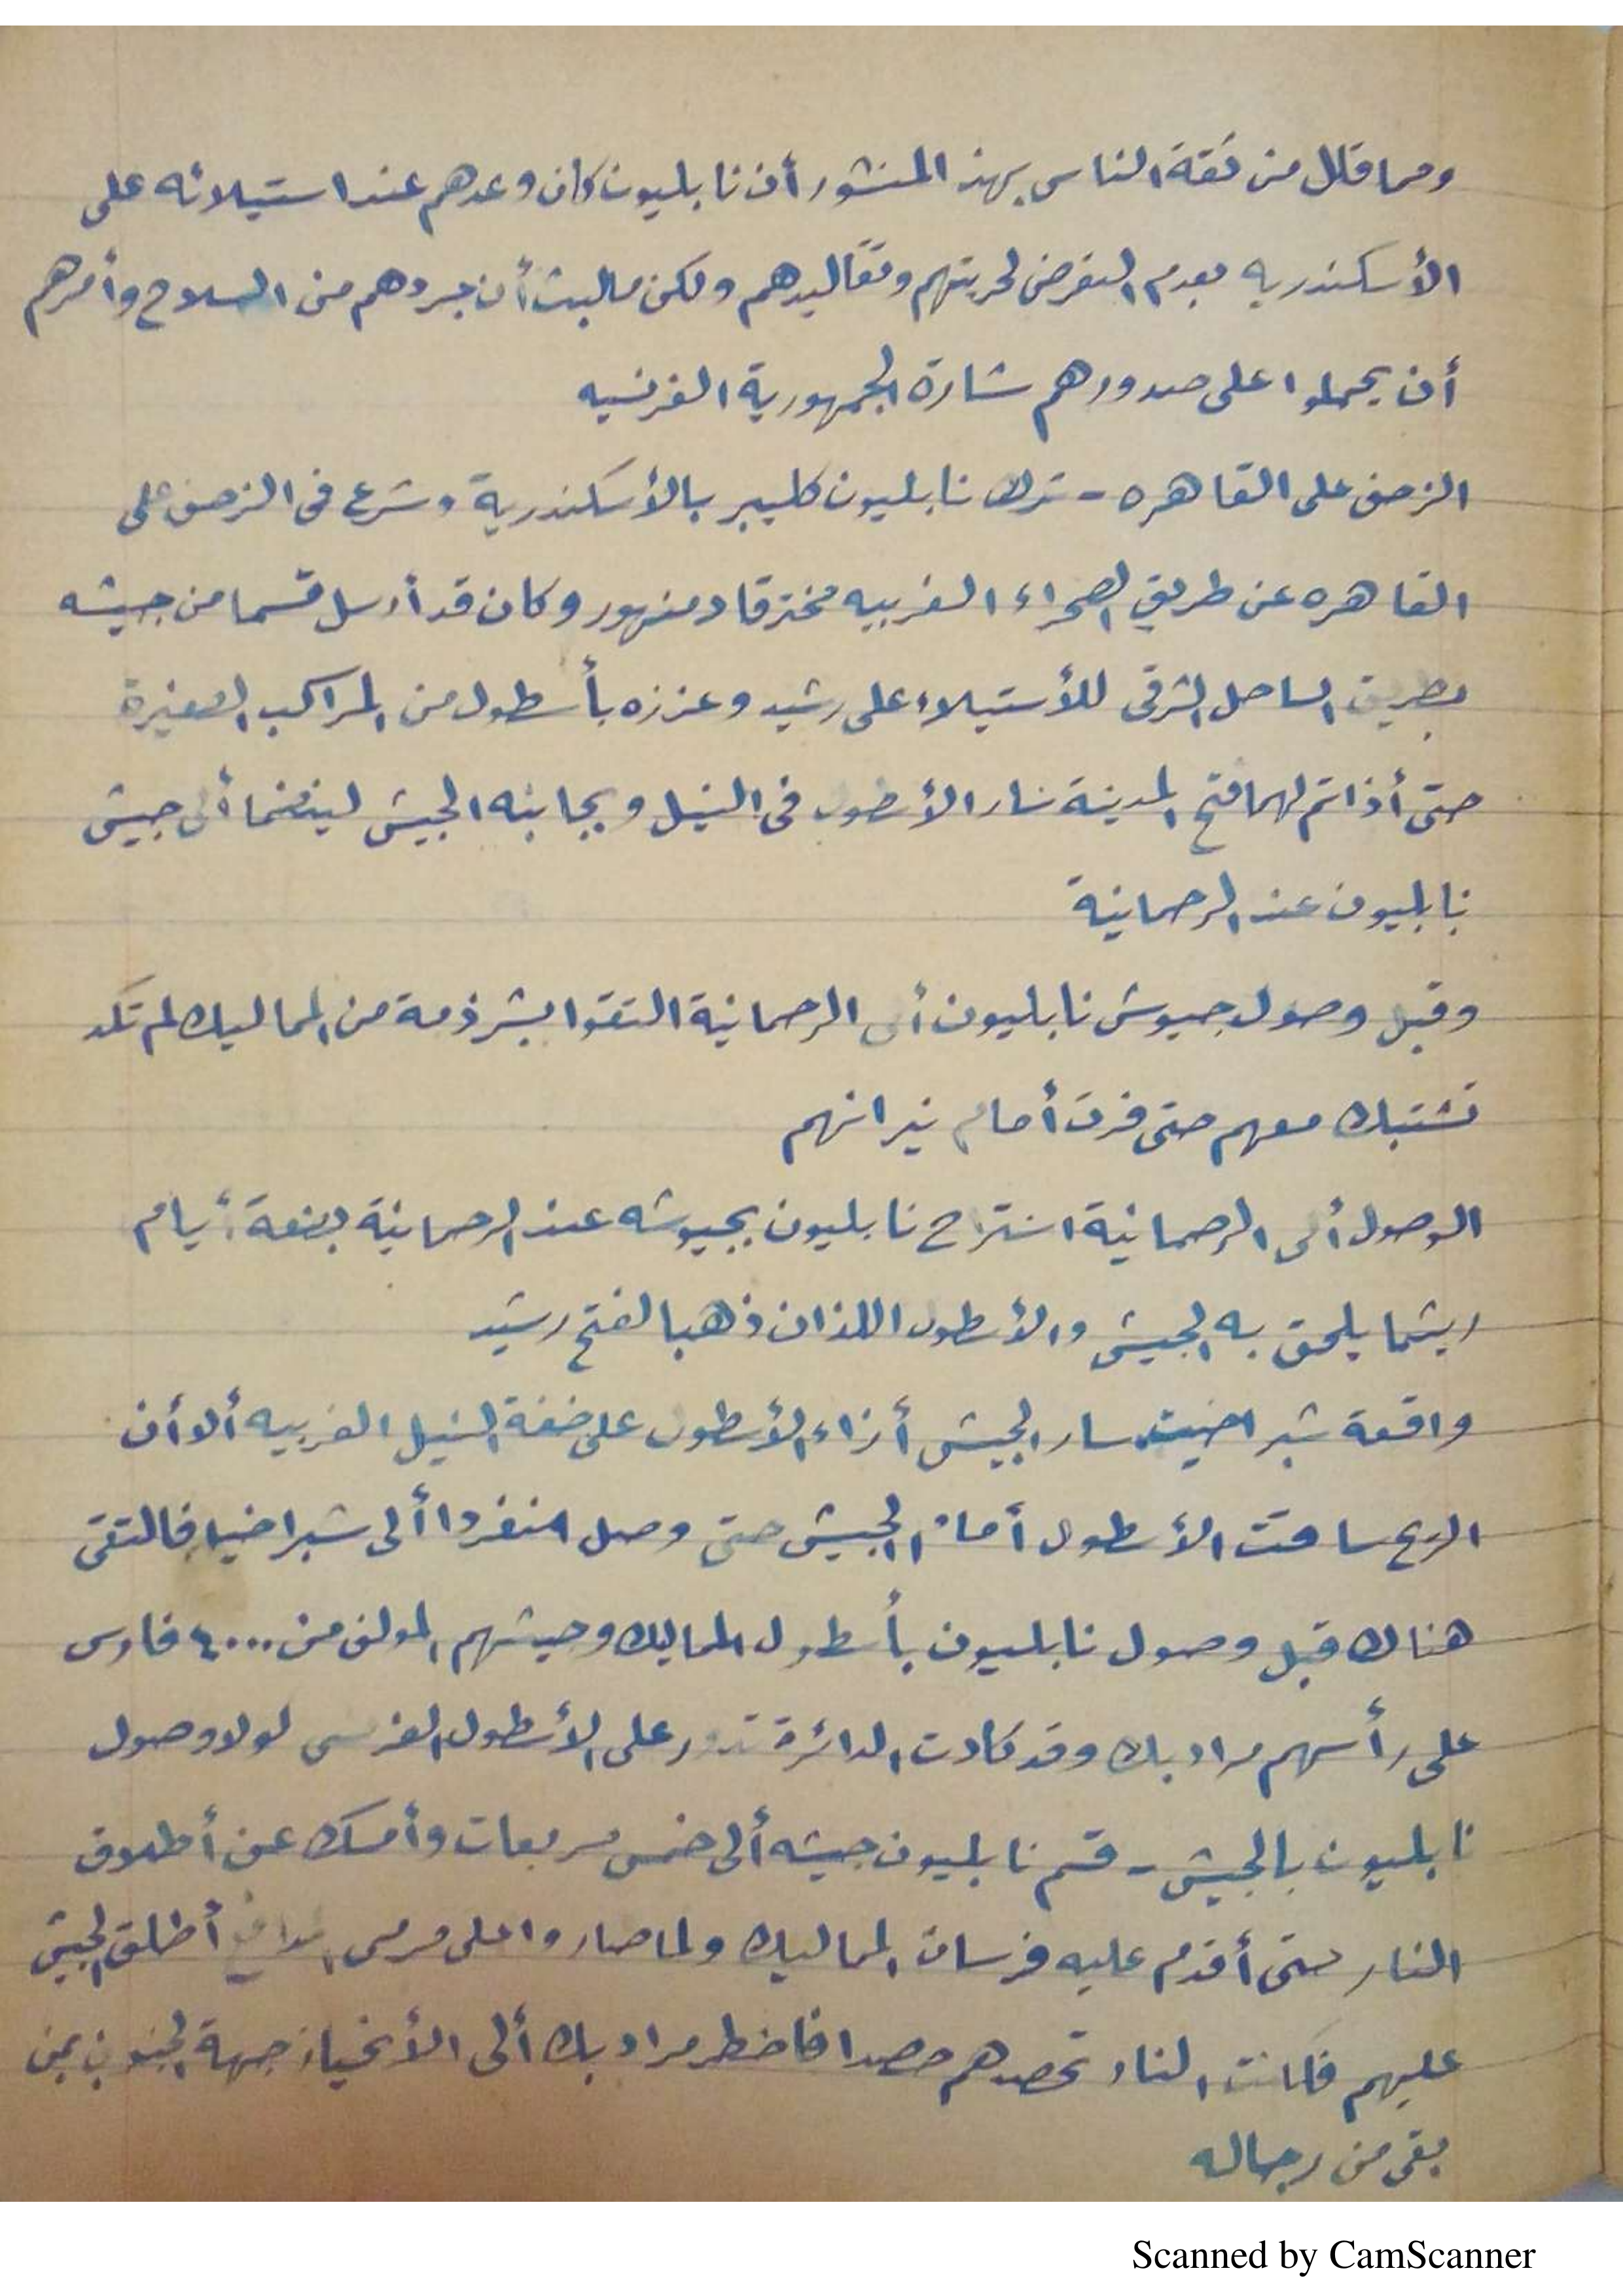 ومما قلل من ثقة الناس بهذ المنشور أن نابليون كان وعدهم عند استيلائه على
الأسكندريه بعدم التعرض لحريتهم وتقاليدهم ولكن مالبث أن جردهم من السلاح وأمرهم
أن يحملوا على صدورهم شارة الجمهورية الفرنسيه
الزحف على القاهره - ترك نابليون كليبر بالأسكندرية وشرع فى الزحف على
القاهره عن طريق الصحراء الغربيه مخترقا دمنهور وكان قد أرسل قسما من جيشه
بطريق الساحل الشرقى للأستيلاء على رشيد وعززه بأسطول من المراكب الصغيرة
حتى أذا تم لهما فتح المدينة سار الأسطول فى النيل وبجانبه الجيش لينضما ألى جيش
نابليون عند الرحمانية
وقبل وصول جيوش نابليون ألى الرحمانية التقوا بشرذمة من المماليك لم تكد
تشتبك معهم حتى فرت أمام نيرانهم
الوصول ألى الرحمانية استراح نابليون بجيوشه عند الرحمانية بضعة أيام
ريثما يلحق به الجيش والأسطول اللذان ذهبا لفتح رشيد
واقعة شبراخيت سار الجيش أزاء الأسطول على ضفة النيل الغربيه ألا أن
الريح ساقت الأسطول أمام الجيش حتى وصل منفردا ألى شبراخيت فالتقى
هناك قبل وصول نابليون بأسطول المماليك وجيشهم المولف من ٤٠٠٠ فارس
على رأسهم مراد بك وقد كادت الدائرة تدور على الأسطول الفرنسى لولا وصول
نابليون بالجيش - قسم نابليون جيشه ألى خمس مربعات وأمسك عن أطلاق
النار حتى أقدم عليه فرسان المماليك ولما صاروا على مرمى المدافع أطلق الجيش
عليهم فكانت النار تحصدهم حصدا فاضطر مراد بك ألى الأنحياز جهة الجنوب بمن
بقى من رجاله
Scanned by CamScanner